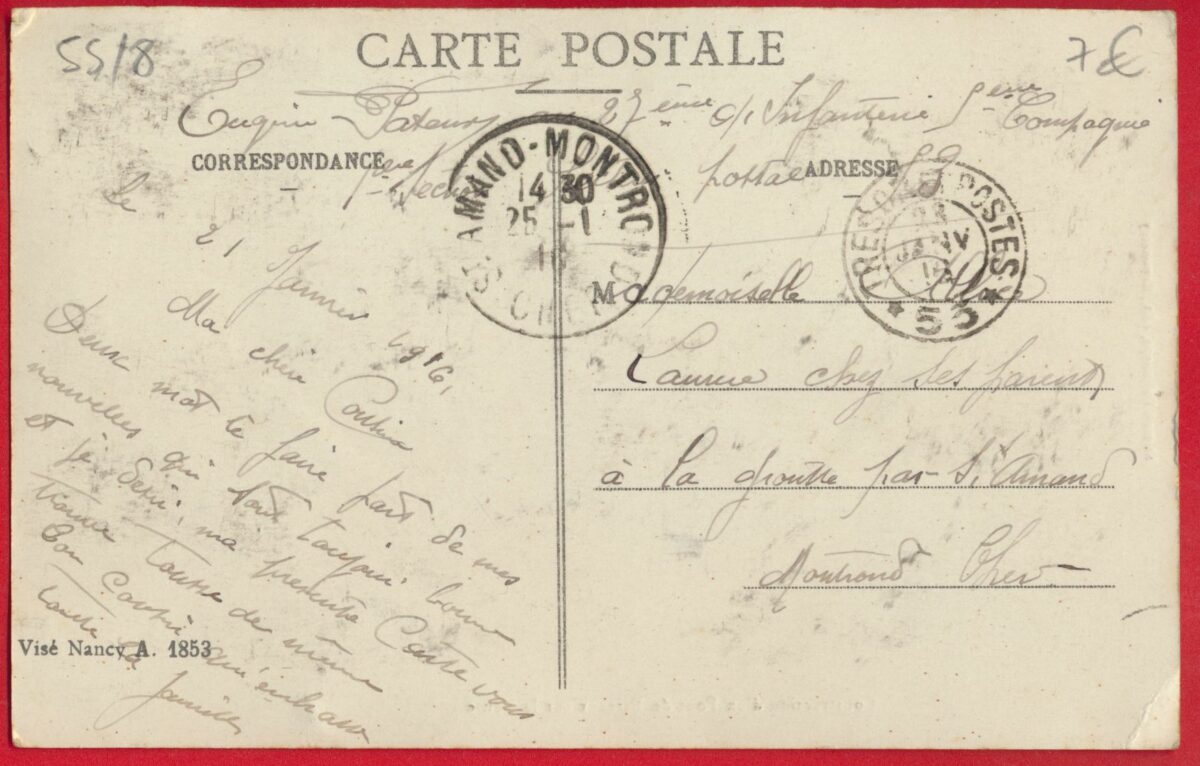 55/8
7 €
CARTE POSTALE
Eugène 27ème d'Infanterie 5ème Compagnie
CORRESPONDANCE
ADRESSE
postal 53
ST AMAND-MONTROND
14 30
25 -1
16
CHER
TRESOR ET POSTES
JANV
16
* 53 *
le
21 Janvier 1916,
Ma chère Cousine
Deux mot te faire part de mes
nouvelles qui sont toujour bonne
et je desir, ma presente Carte vous
trouve toutse de même
ton Cousin qui embrasse
toute la famille
Visé Nancy A. 1853
Mademoiselle
Laure chez ses parents
à la groutte par St Amand
Montrond Cher